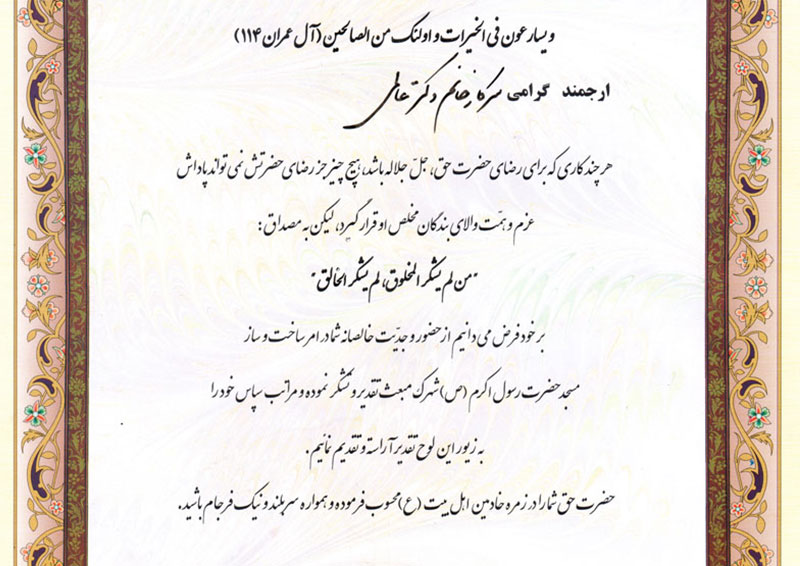 و یسارعون فی الخیرات و اولئک من الصالحین (آل عمران ۱۱۴)
ارجمند گرامی سرکار خانم دکتر عاملی
هر چند کاری که برای رضای حضرت حق، جلّ جلاله باشد، هیچ چیز جز رضای حضرتش نمی تواند پاداش
عزم و همّت والای بندگان مخلص او قرار گیرد، لیکن به مصداق :
"من لم یشکر المخلوق، لم یشکر الخالق"
بر خود فرض می دانیم از حضور و جدیّت خالصانه شما در امر ساخت و ساز
مسجد حضرت رسول اکرم (ص) شهرک مبعث تقدیر و تشکر نموده و مراتب سپاس خود را
به زیور این لوح تقدیر آراسته و تقدیم نمائیم.
حضرت حق شما را در زمره خادمین اهل بیت (ع) محسوب فرموده و همواره سربلند و نیک فرجام باشید.